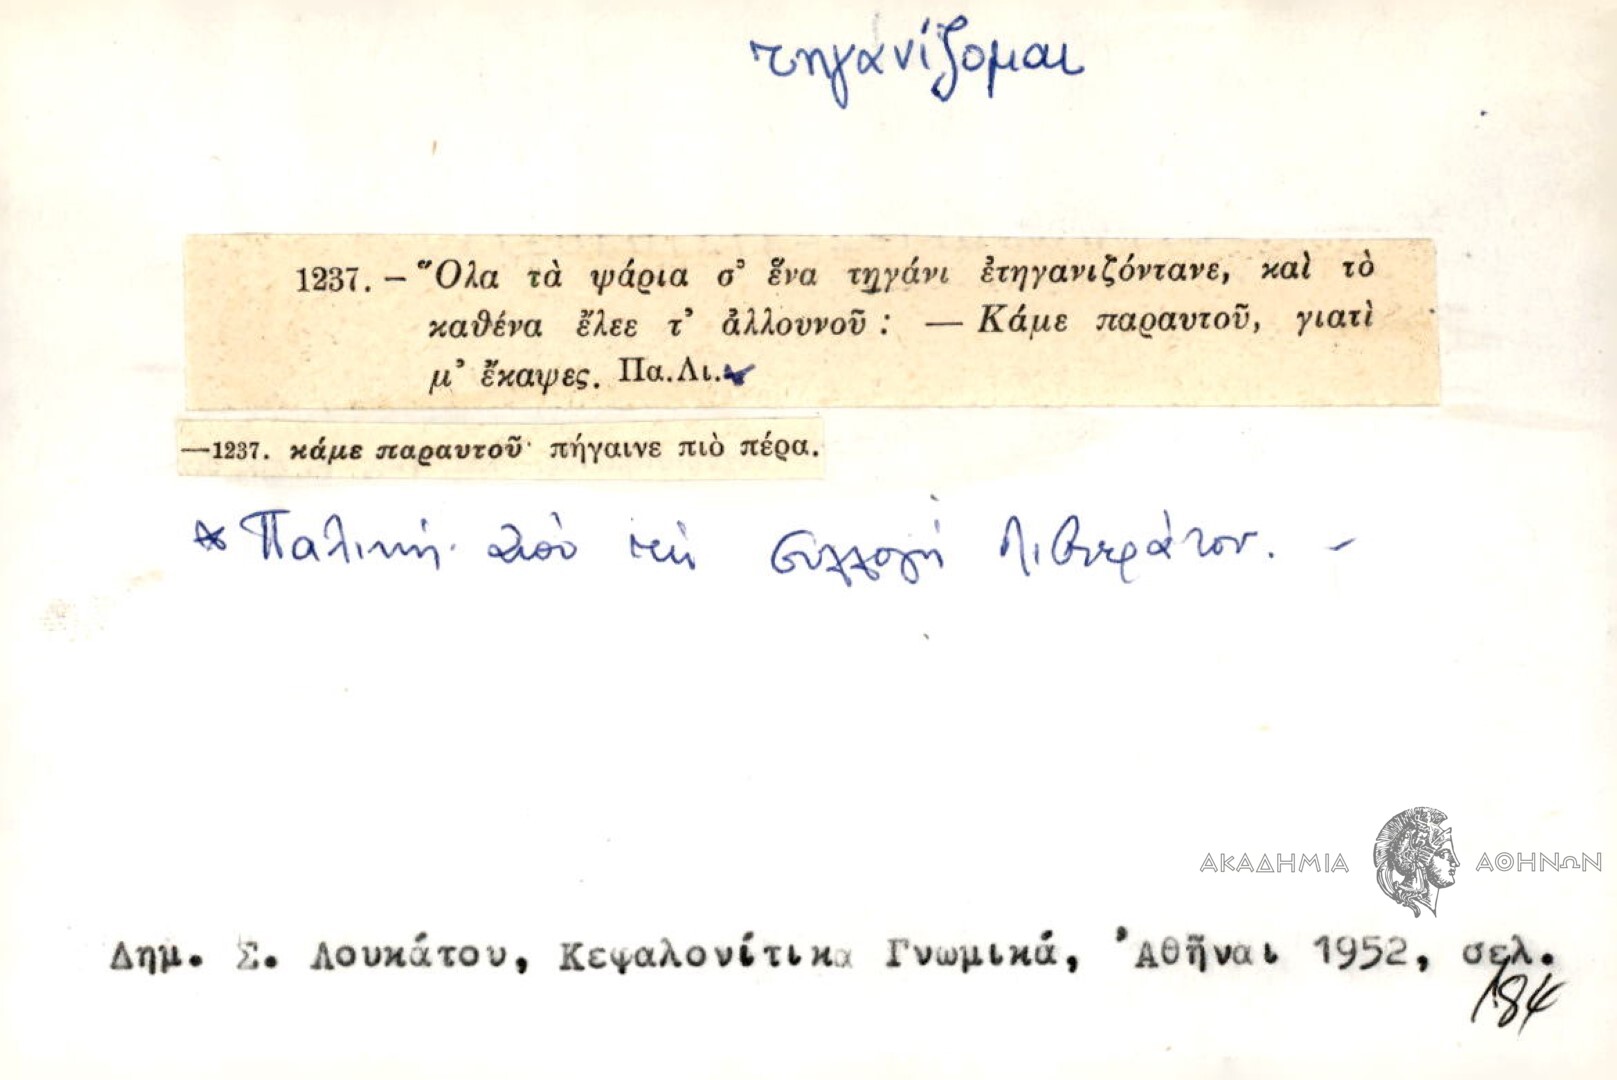 τηγανίζομαι
1237. – Ὅλα τὰ ψάρια σ' ἕνα τηγάνι ἐτηγανιζόντανε, καὶ τὸ
καθένα ἔλεε τ' ἀλλουνοῦ : — Κάμε παραυτοῦ, γιατὶ
μ' ἔκαψες. Πα.Λι.
—1237. κάμε παραυτοῦ· πήγαινε πιὸ πέρα.
* Παλικὴ. ἀπὸ τὴ συλλογὴ Λιβιεράτου. –
ΑΚΑΔΗΜΙΑ ΑΘΗΝΩΝ
Δημ. Σ. Λουκάτου, Κεφαλονίτικα Γνωμικά, Ἀθῆναι 1952, σελ.
184